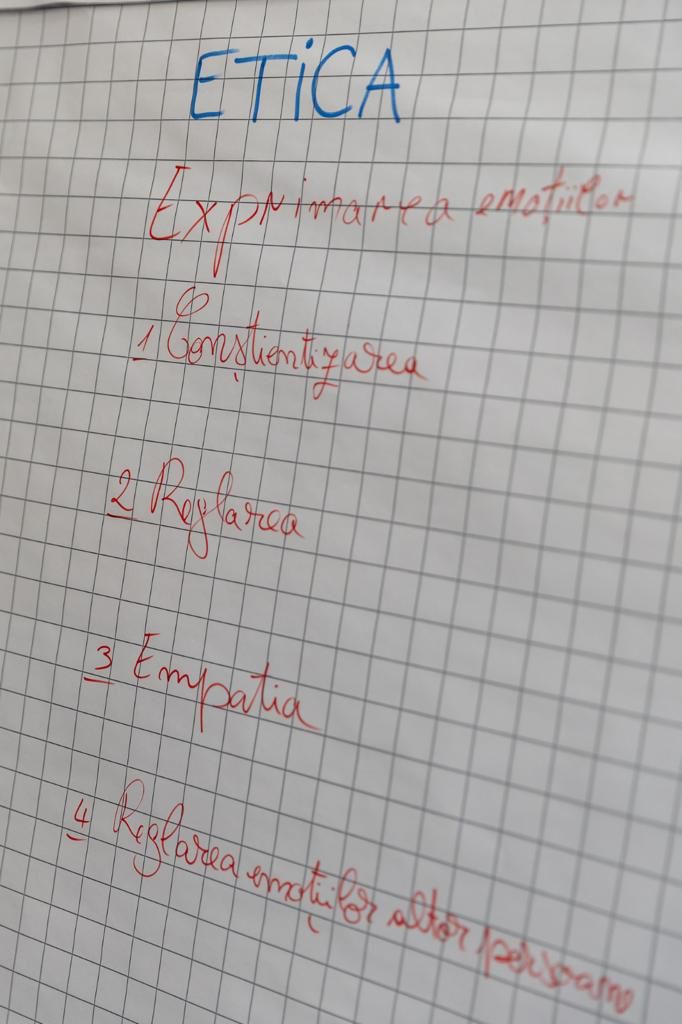 ETiCA
Exprimarea emoțiilor
1 Conștientizarea
2 Reglarea
3 Empatia
4 Reglarea emoțiilor altor persoane